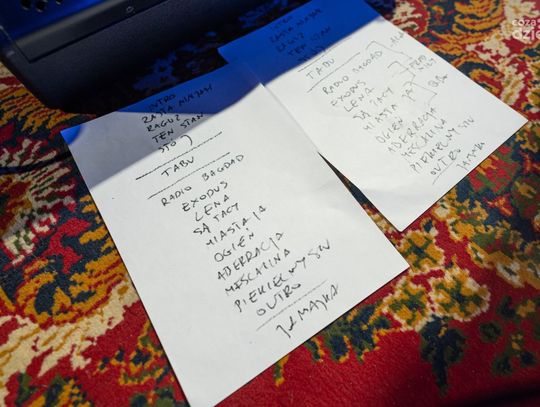 INTRO
RASTA
RAGUZ
TEN STAN
STÓJ
TABU
RADIO BAGDAD
EXODUS
LENA
SĄ TACY
MIASTA JA
OGIEŃ
ABERRACJA
MESCALINA
PIEKIELNY SYN
OUTRO
JAMAJKA
INTRO
RASTA
RAGUZ
TEN STAN
STÓJ
TABU
RADIO BAGDAD
EXODUS
LENA
SĄ TACY
MIASTA JA
OGIEŃ
ABERRACJA
MESCALINA
PIEKIELNY SYN
OUTRO
JAMAJKA